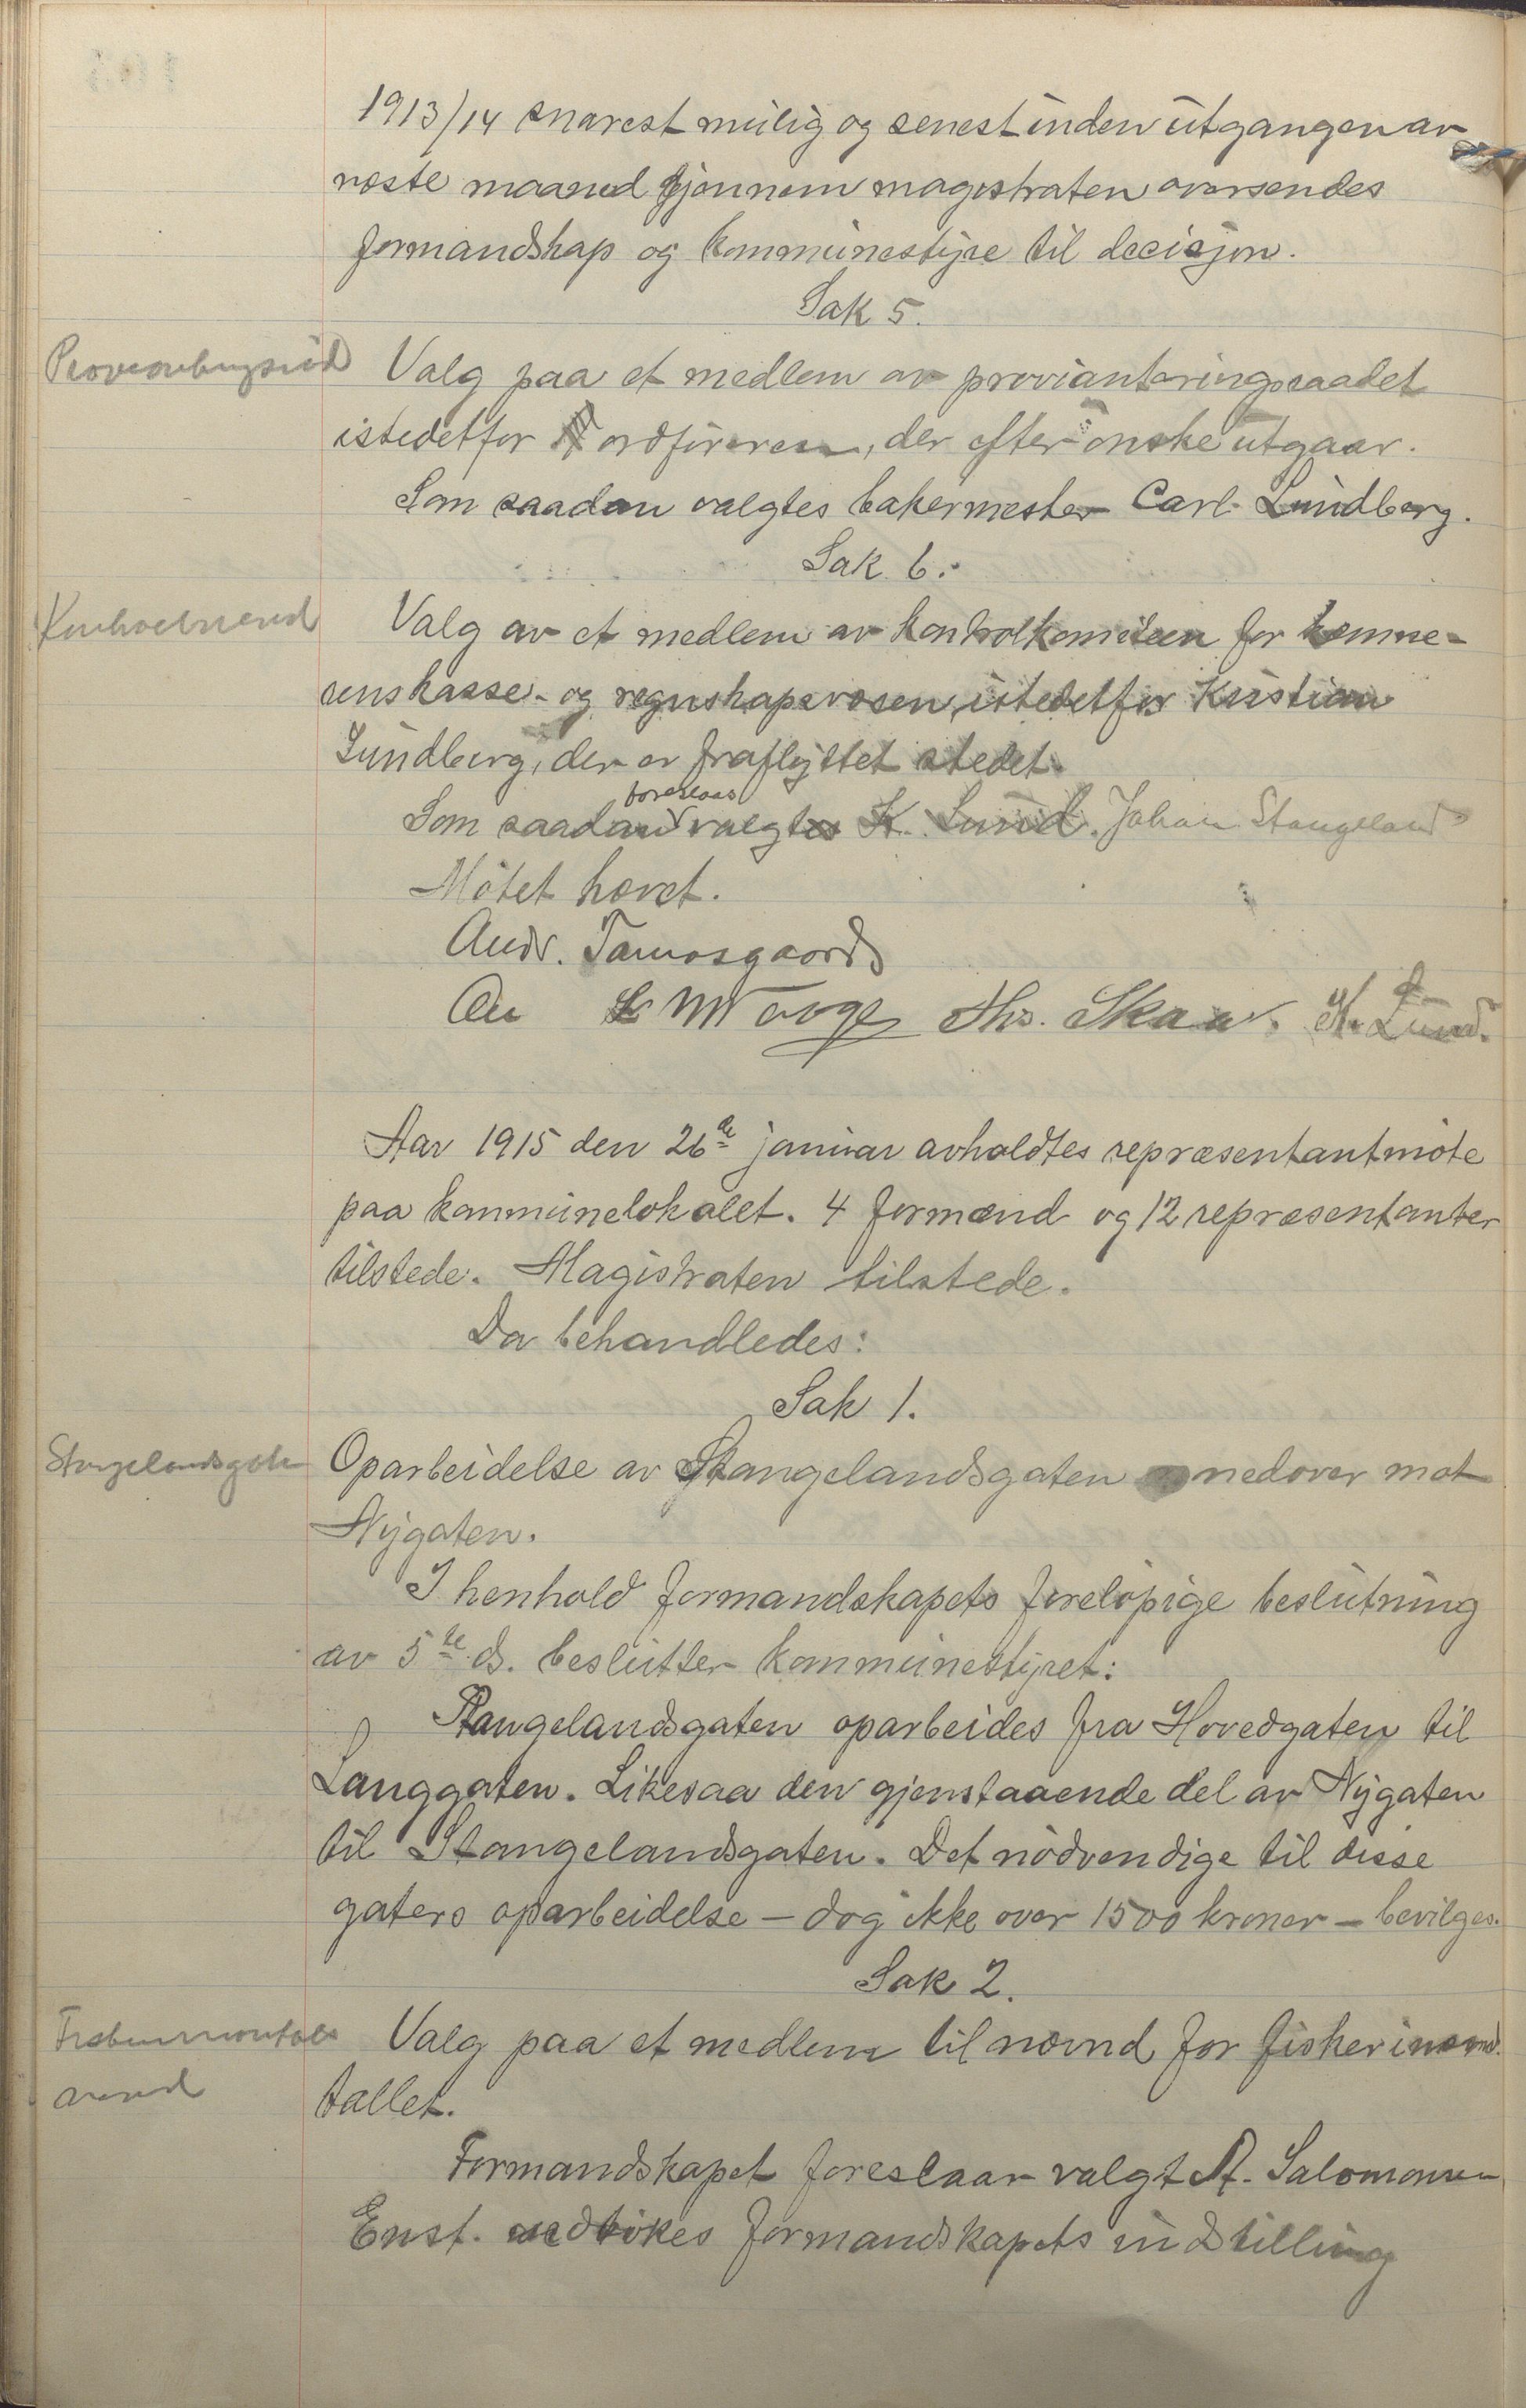 1913/14 snarest mulig og senest inden utgangen av
næste maaned gjennem magistraten oversendes
formandskap og kommunestyre til decisjon.
Sak 5.
Provianteringsraad
Valg paa et medlem av provianteringsraadet
istedetfor ordføreren, der efter ønske utgaar.
Som saadan valgtes bakermester Carl Lundberg.
Sak 6.
Kontrolnævnd
Valg av et medlem av kontrolkomiteen for kæmne-
renskasse- og regnskapsvæsen istedetfor Kristian
Lundberg, der er fraflyttet stedet.
foreslaas
Som saadan valgtes K. Lund. Johan Stangeland
Møtet hævet.
Andr. Tamosgaard
Thv. Skaar. K. Lund.
Aar 1915 den 26de januar avholdtes repræsentantmøte
paa kommunelokalet. 4 formænd og 12 repræsentanter
tilstede. Magistraten tilstede.
Da behandledes:
Sak 1.
Stangelandsgaten
Oparbeidelse av Stangelandsgaten nedover mot
Nygaten.
I henhold formandskapets foreløpige beslutning
av 5te ds. beslutter kommunestyret:
Stangelandsgaten oparbeides fra Hovedgaten til
Langgaten. Likesaa den gjenstaaende del av Nygaten
til Stangelandsgaten. Det nødvendige til disse
gaters oparbeidelse – dog ikke over 1500 kroner – bevilges.
Sak 2.
Valg paa et medlem til nævnd for fiskerimand-
tallet.
Formandskapet foreslaar valgt A. Salomonsen
Enst. vedtokes formandskapets indstilling